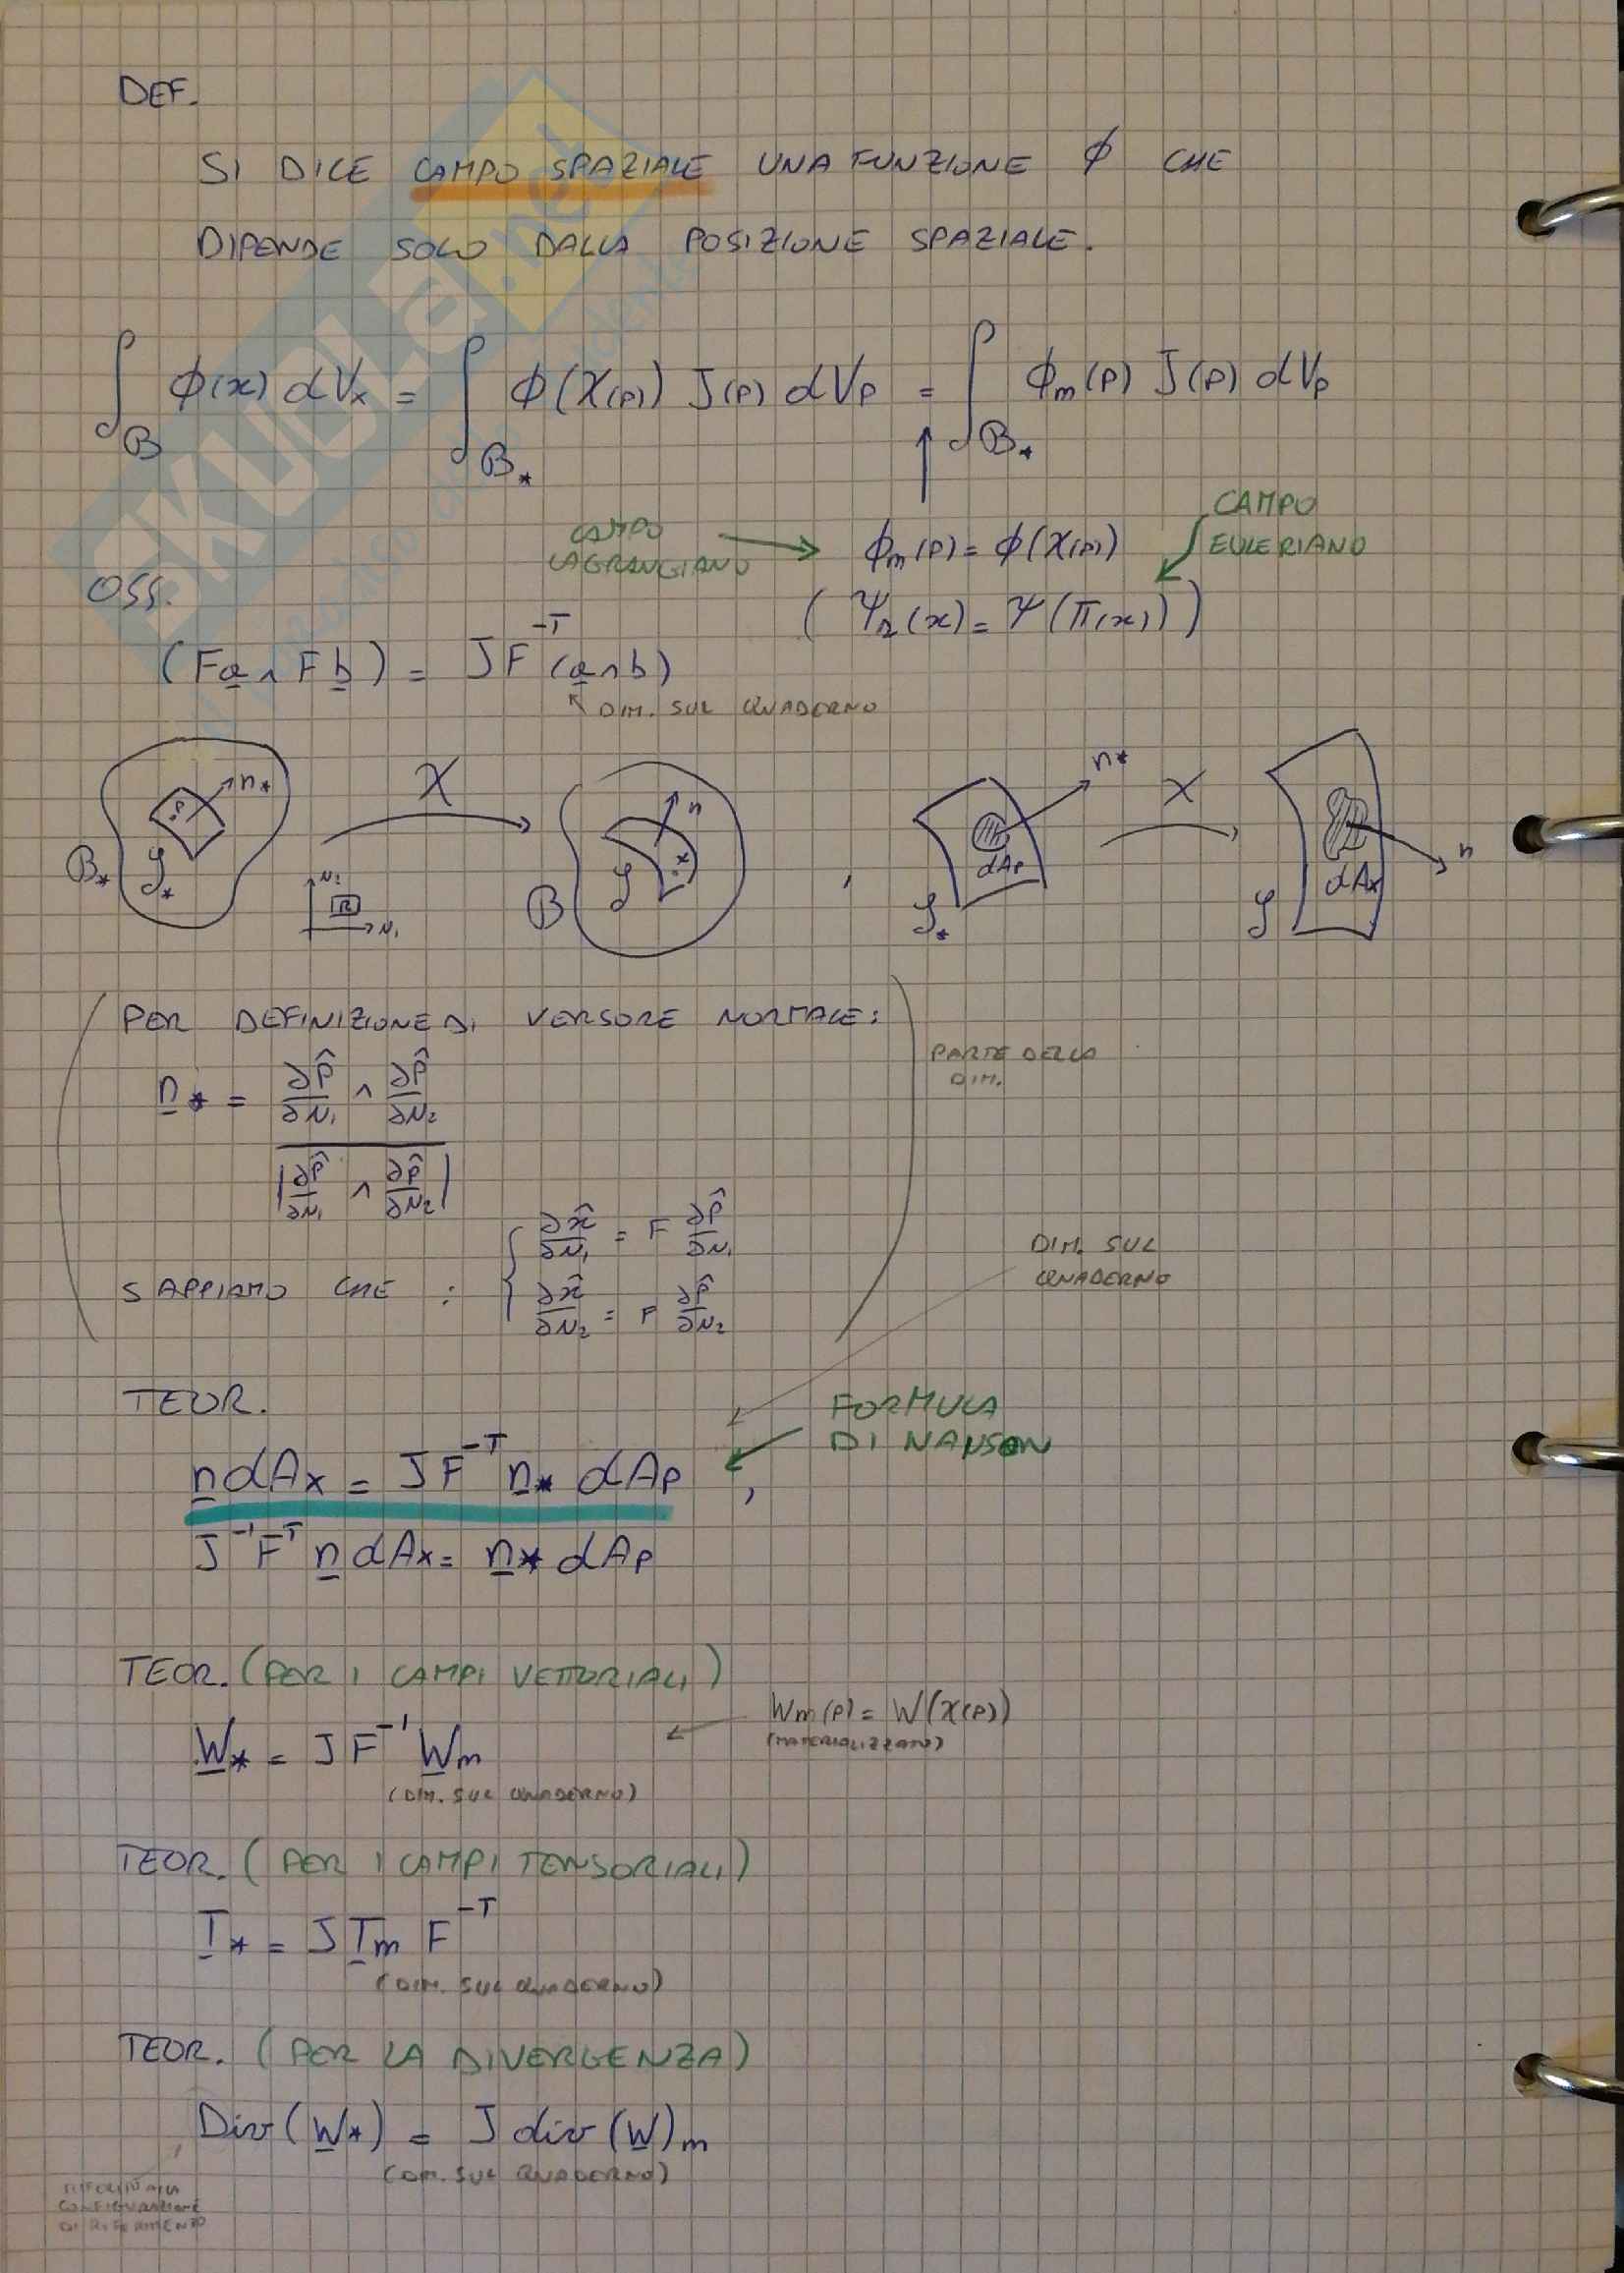 DEF.
SI DICE CAMPO SPAZIALE UNA FUNZIONE ϕ CHE
DIPENDE SOLO DALLA POSIZIONE SPAZIALE.
∫_B ϕ(x) dVx = ∫_B* ϕ(χ(p)) J(p) dVp = ∫_B* ϕm(p) J(p) dVp
CAMPO LAGRANGIANO → ϕm(p) = ϕ(χ(p))
CAMPO EULERIANO
(Ψr(x) = Ψ(π(x)))
OSS.
(Fa ∧ Fb) = JF^-T (a∧b)
DIM. SUL QUADERNO
B* S* p n* χ B S x n , S* dAp n* χ S dAx n
N2 R N1
PER DEFINIZIONE DI VERSORE NORMALE:
n* = (∂p̂/∂N1 ∧ ∂p̂/∂N2) / |∂p̂/∂N1 ∧ ∂p̂/∂N2|
PARTE DELLA
DIM.
SAPPIAMO CHE : { ∂x̂/∂N1 = F ∂p̂/∂N1
∂x̂/∂N2 = F ∂p̂/∂N2
DIM. SUL
QUADERNO
TEOR.
FORMULA
DI NANSON
n dAx = J F^-T n* dAp ,
J^-1 F^T n dAx = n* dAp
TEOR. (PER I CAMPI VETTORIALI)
W* = J F^-1 Wm
Wm(p) = W(χ(p))
(MATERIALIZZATO)
(DIM. SUL QUADERNO)
TEOR. (PER I CAMPI TENSORIALI)
T* = J Tm F^-T
(DIM. SUL QUADERNO)
TEOR. (PER LA DIVERGENZA)
Div(W*) = J div(W)m
(DIM. SUL QUADERNO)
RIFERITO ALLA
CONFIGURAZIONE
DI RIFERIMENTO
SKUOLa.net